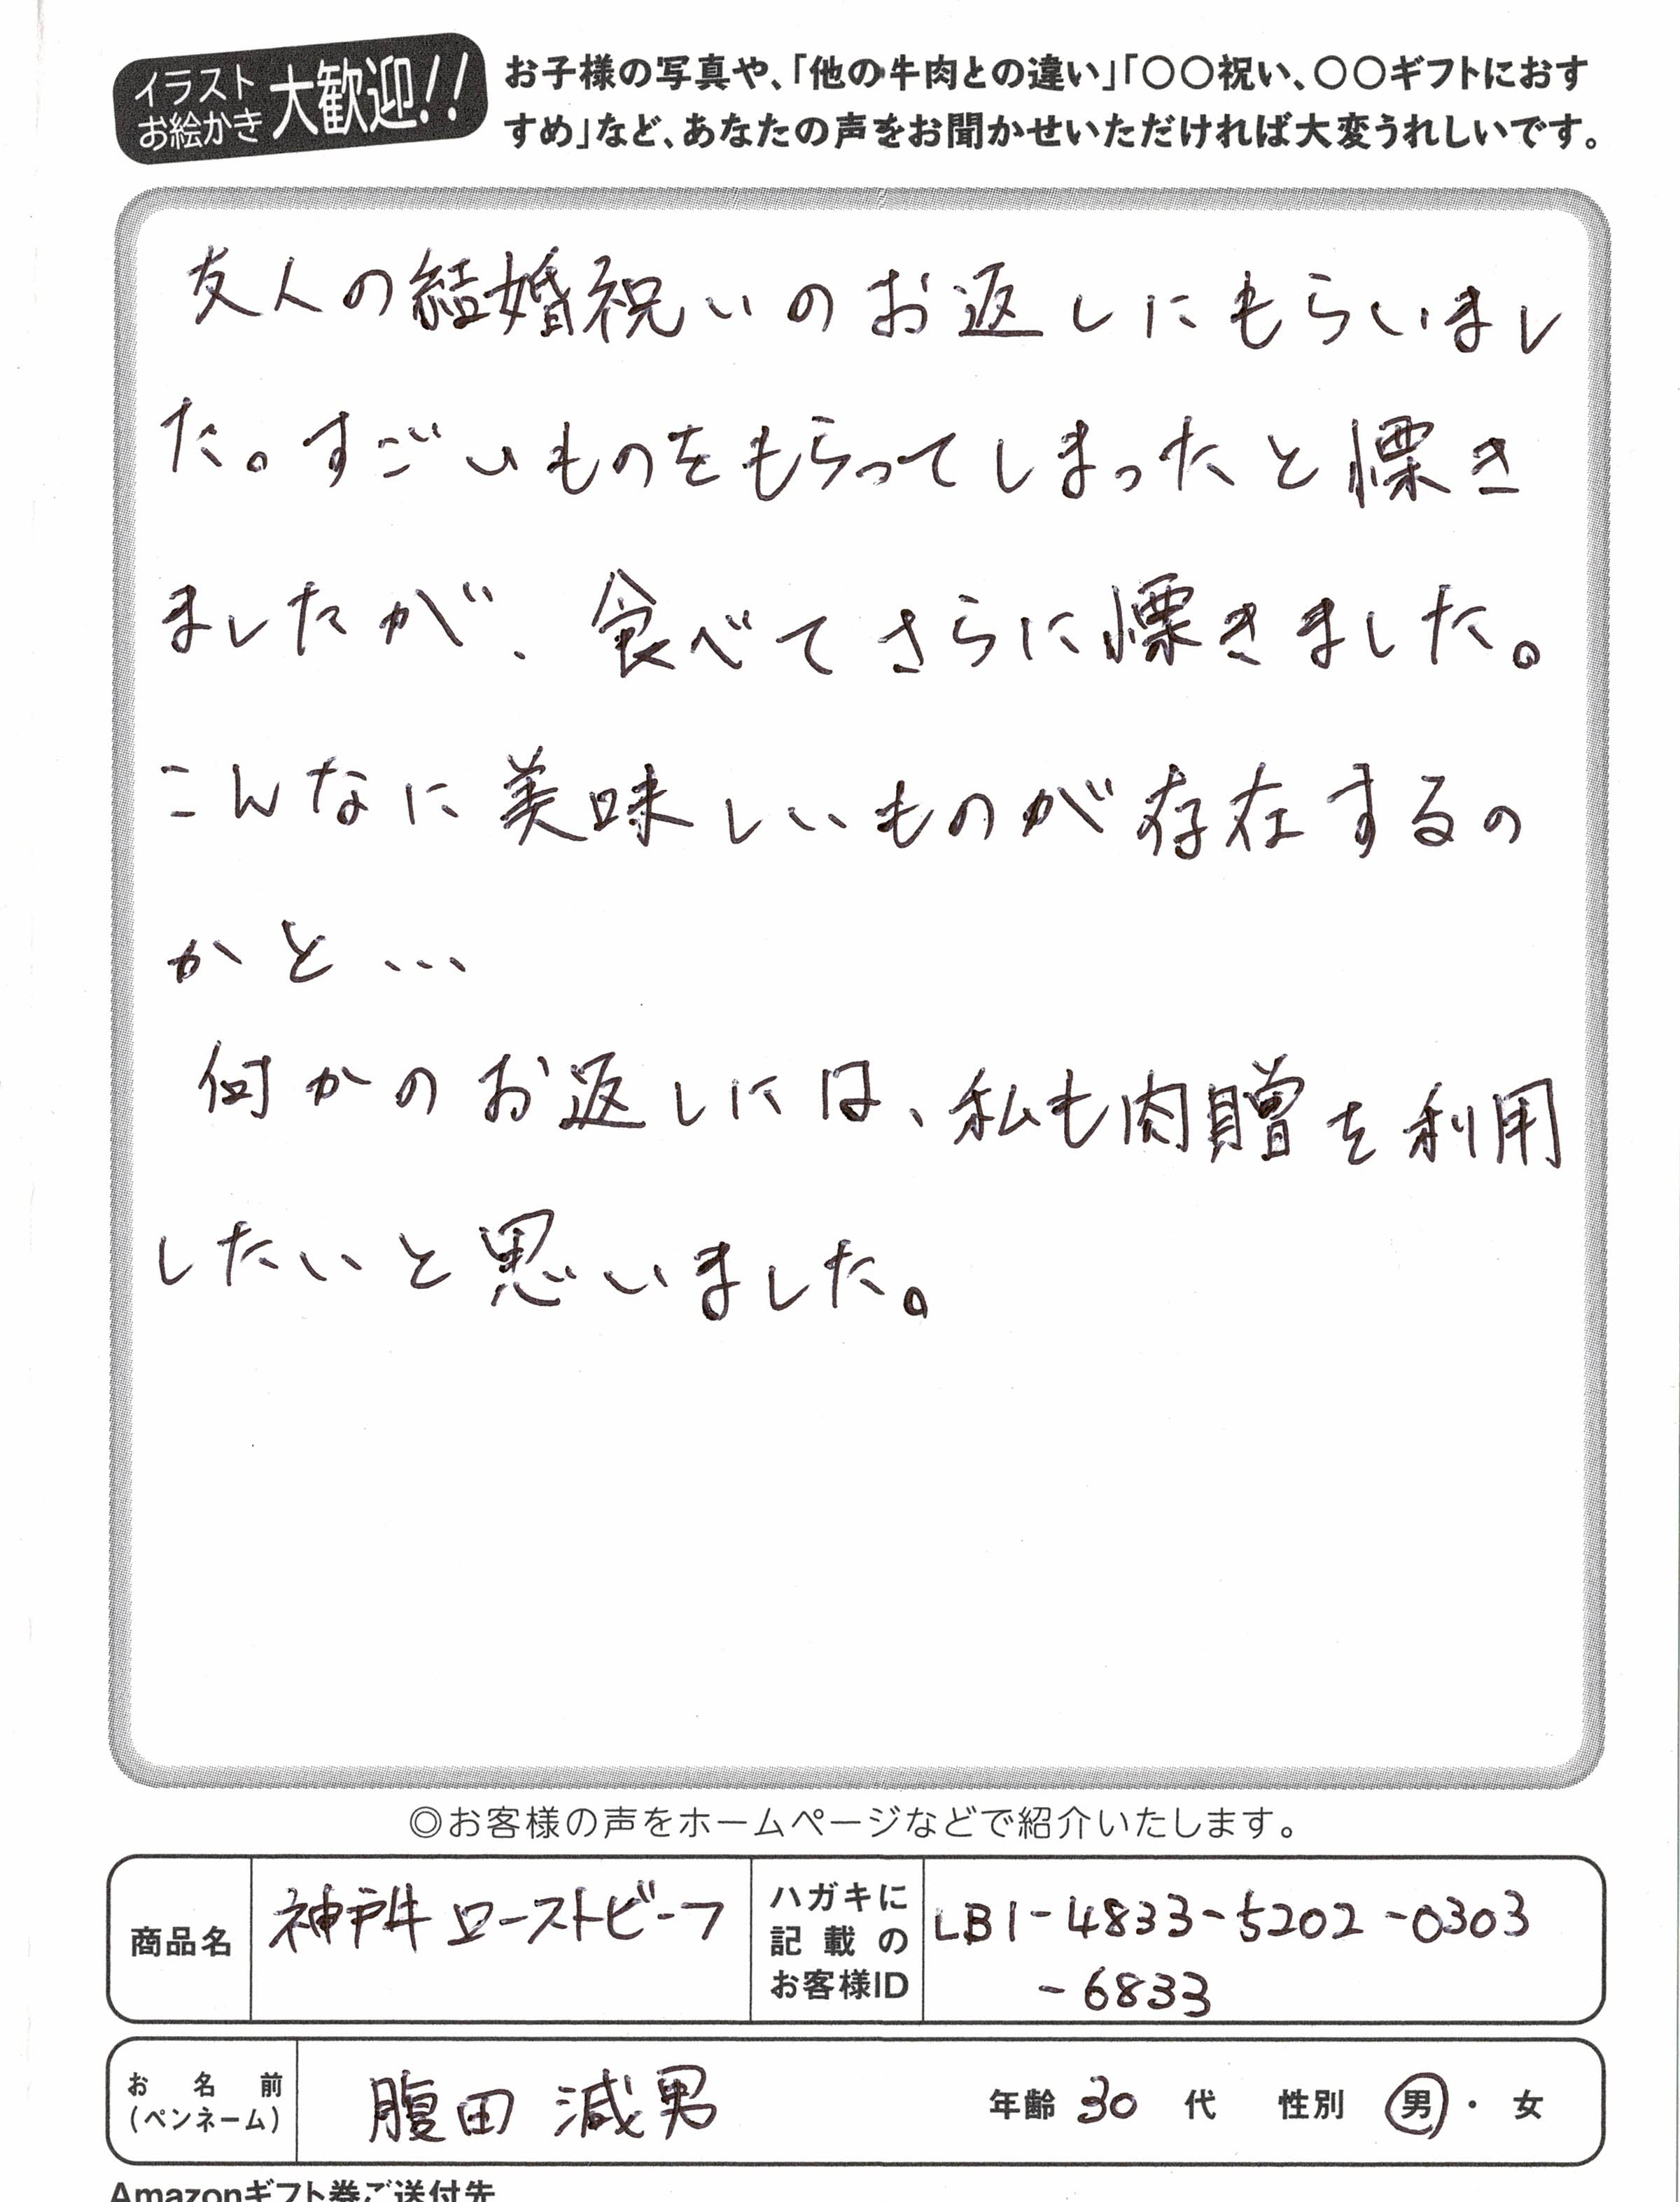 イラスト
お絵かき
大歓迎!!
お子様の写真や、「他の牛肉との違い」「〇〇祝い、〇〇ギフトにおす
すめ」など、あなたの声をお聞かせいただければ大変うれしいです。
友人の結婚祝いのお返しにもらいまし
た。すごいものをもらってしまったと慄き
ましたが、食べてさらに慄きました。
こんなに美味しいものが存在するの
かと…
何かのお返しには、私も肉贈を利用
したいと思いました。
◎お客様の声をホームページなどで紹介いたします。
商品名 神戸牛 ローストビーフ
ハガキに
記載の
お客様ID
LB1-4833-5202-0303
-6833
お名前
(ペンネーム)
腹田 減男 年齢 30 代 性別 男・女
Amazonギフト券ご送付先